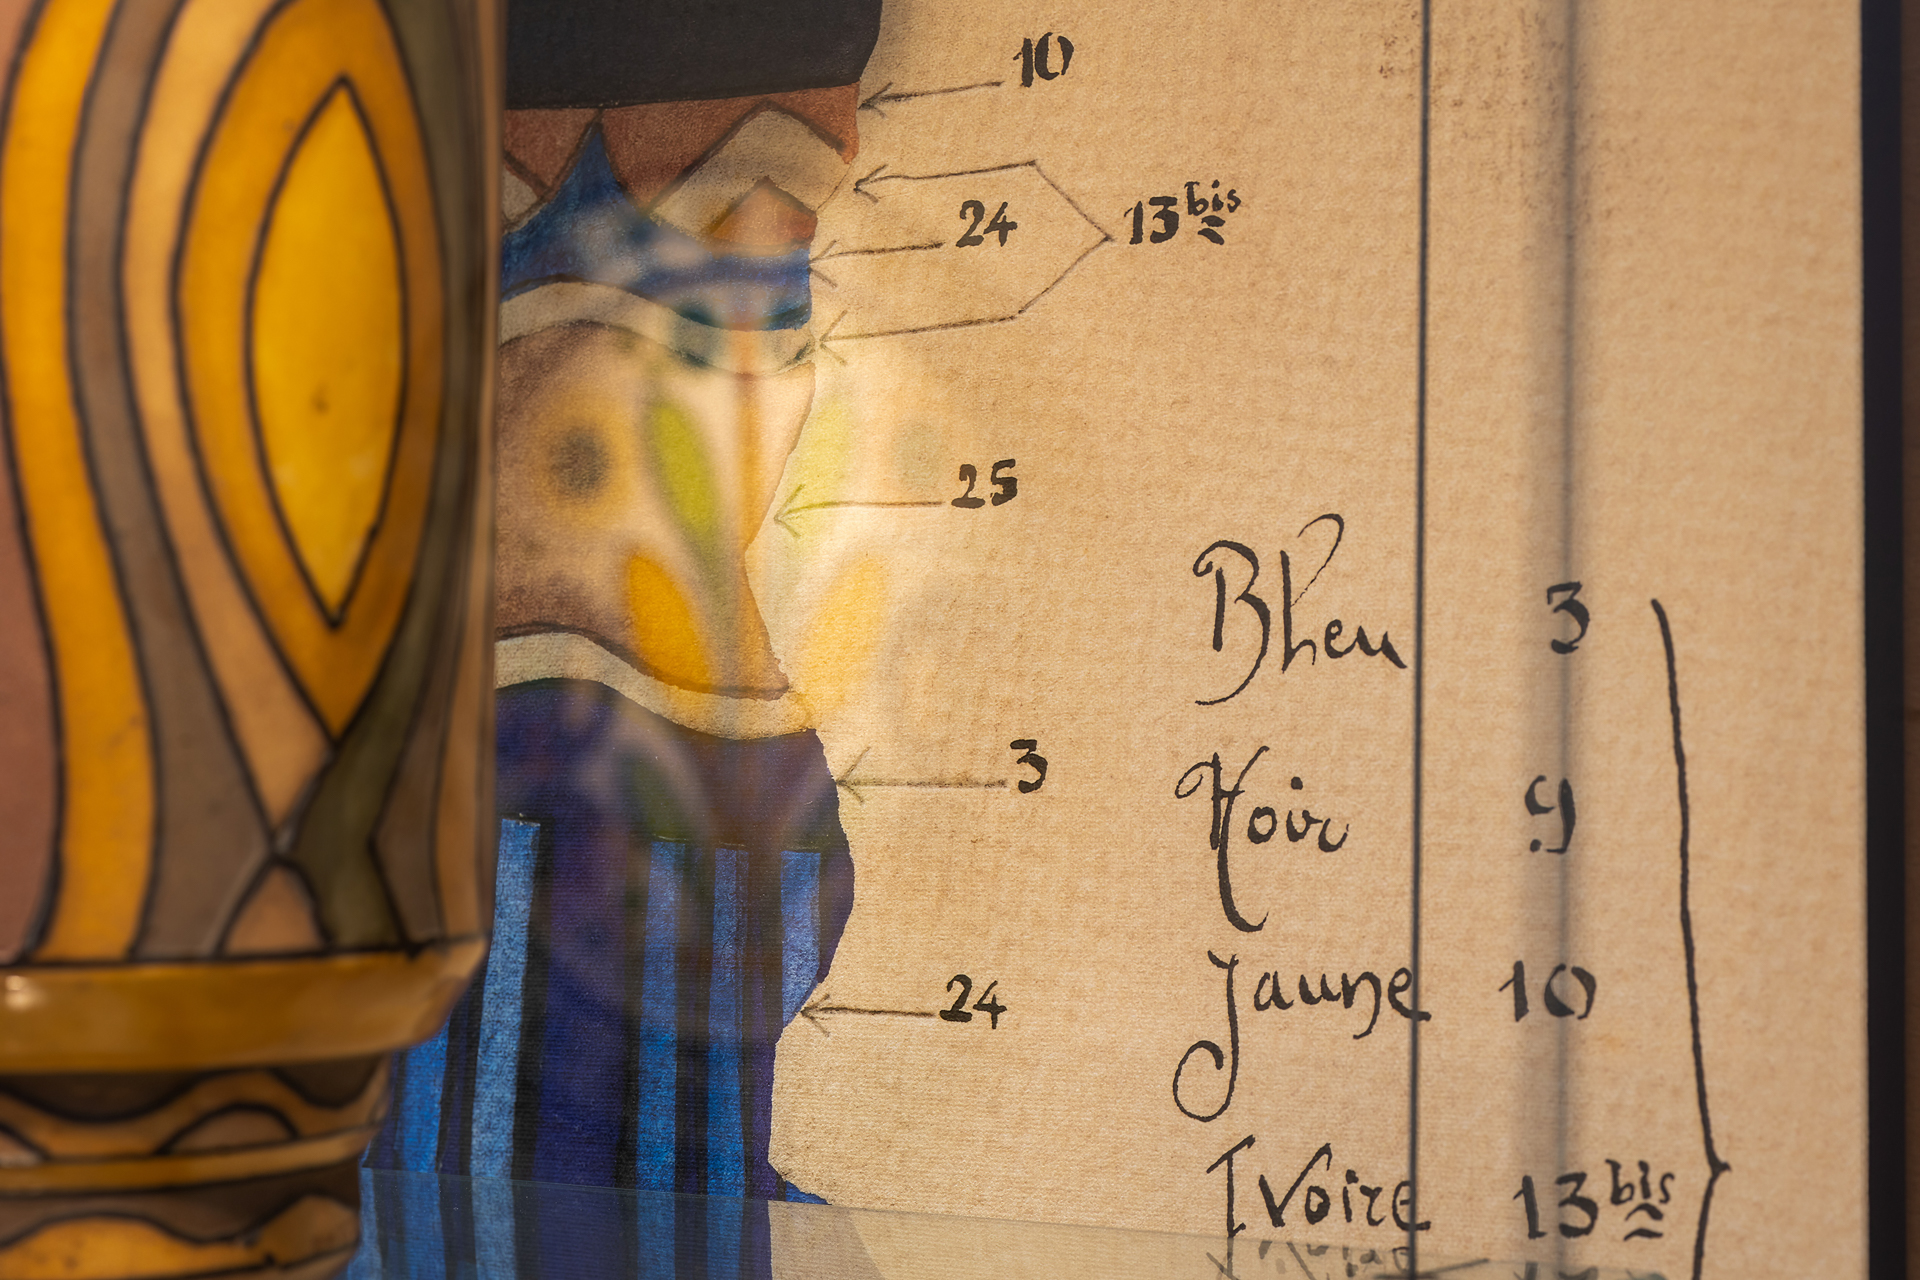 10
24 13 bis
25
3
24
Bleu 3
Noir 9
Jaune 10
Ivoire 13 bis